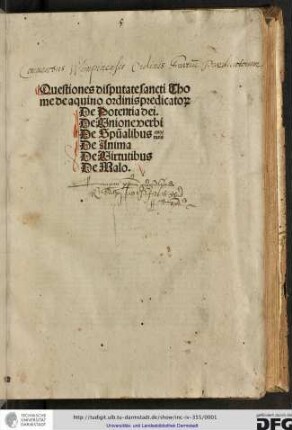 Conventus Wimpinensis Ordinis Fratrum Praedicatorum
Questiones disputate sancti Tho
me de aquino ordinis predicatoꝝ
De Potentia dei.
De Unione verbi
De Spũalibus
De Anima
De Virtutibus
De Malo.
TECHNISCHE
UNIVERSITÄT
DARMSTADT
http://tudigit.ulb.tu-darmstadt.de/show/inc-iv-351/0001
Universitäts- und Landesbibliothek Darmstadt
gefördert durch die
DFG